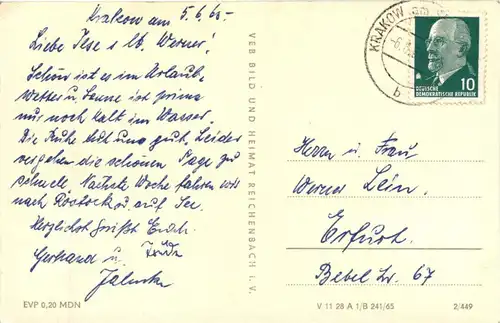 Krakow am 5.6.65.
Liebe Ilse u. lb. Werner!
Schön ist es im Urlaub,
Wetter u. Sonne ist prima
nur noch kalt im Wasser.
Die Ruhe tut uns gut. Leider
vergehen die schönen Tage zu
schnell. Nächste Woche fahren wir
nach Rostock u. auf See.
Herzlichst grüßt Euch
Gerhard u.
VEB BILD UND HEIMAT REICHENBACH I. V.
KRAKOW am
b
10
DEUTSCHE
DEMOKRATISCHE REPUBLIK
Herrn u. Frau
Werner Lein.
Erfurt.
Bebel Str. 67
EVP 0,20 MDN
V 11 28 A 1/B 241/65
2/449